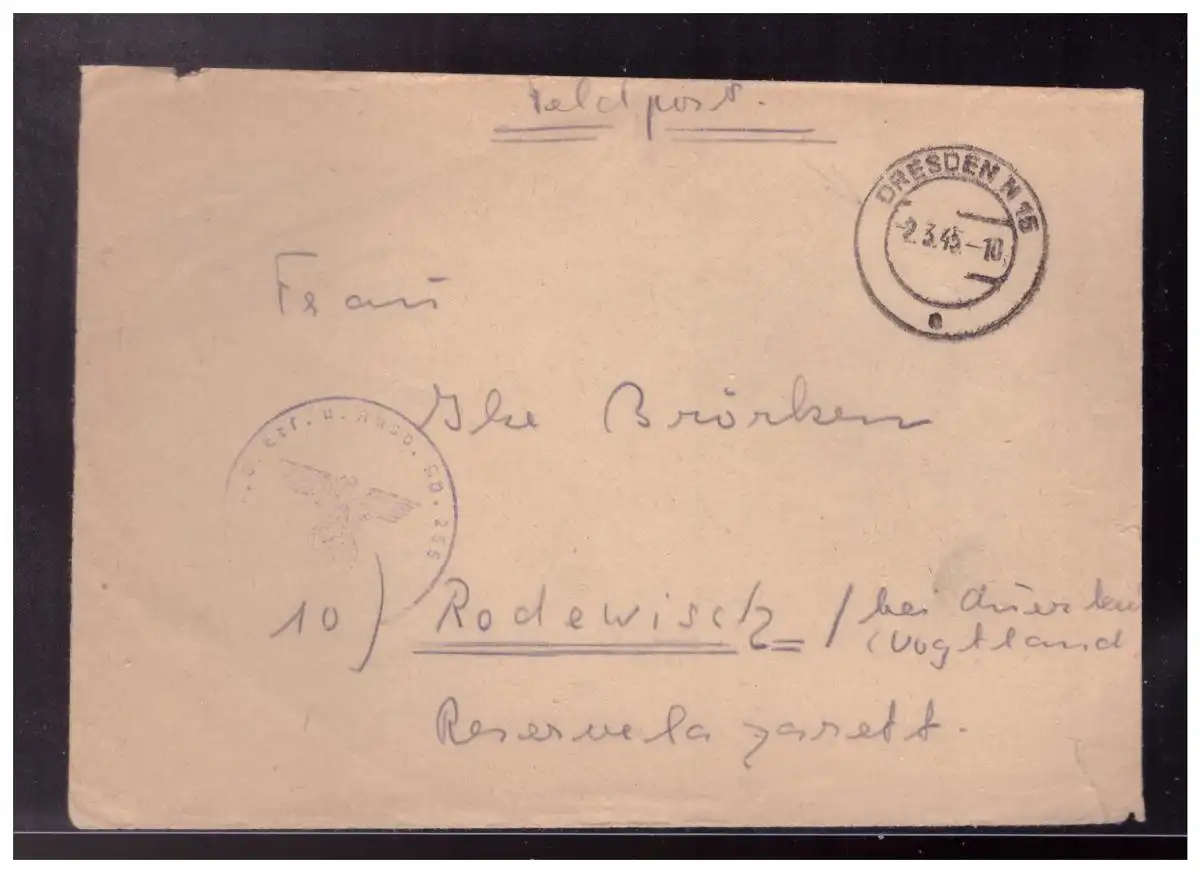 Feldpost.
DRESDEN N 15
-2.3.45.-10
e
Frau
Ilse Brörken
Ers. u. Ausb. Ab. 256
10) Rodewisch / bei Auerbach
(Vogtland
Reservelazarett.